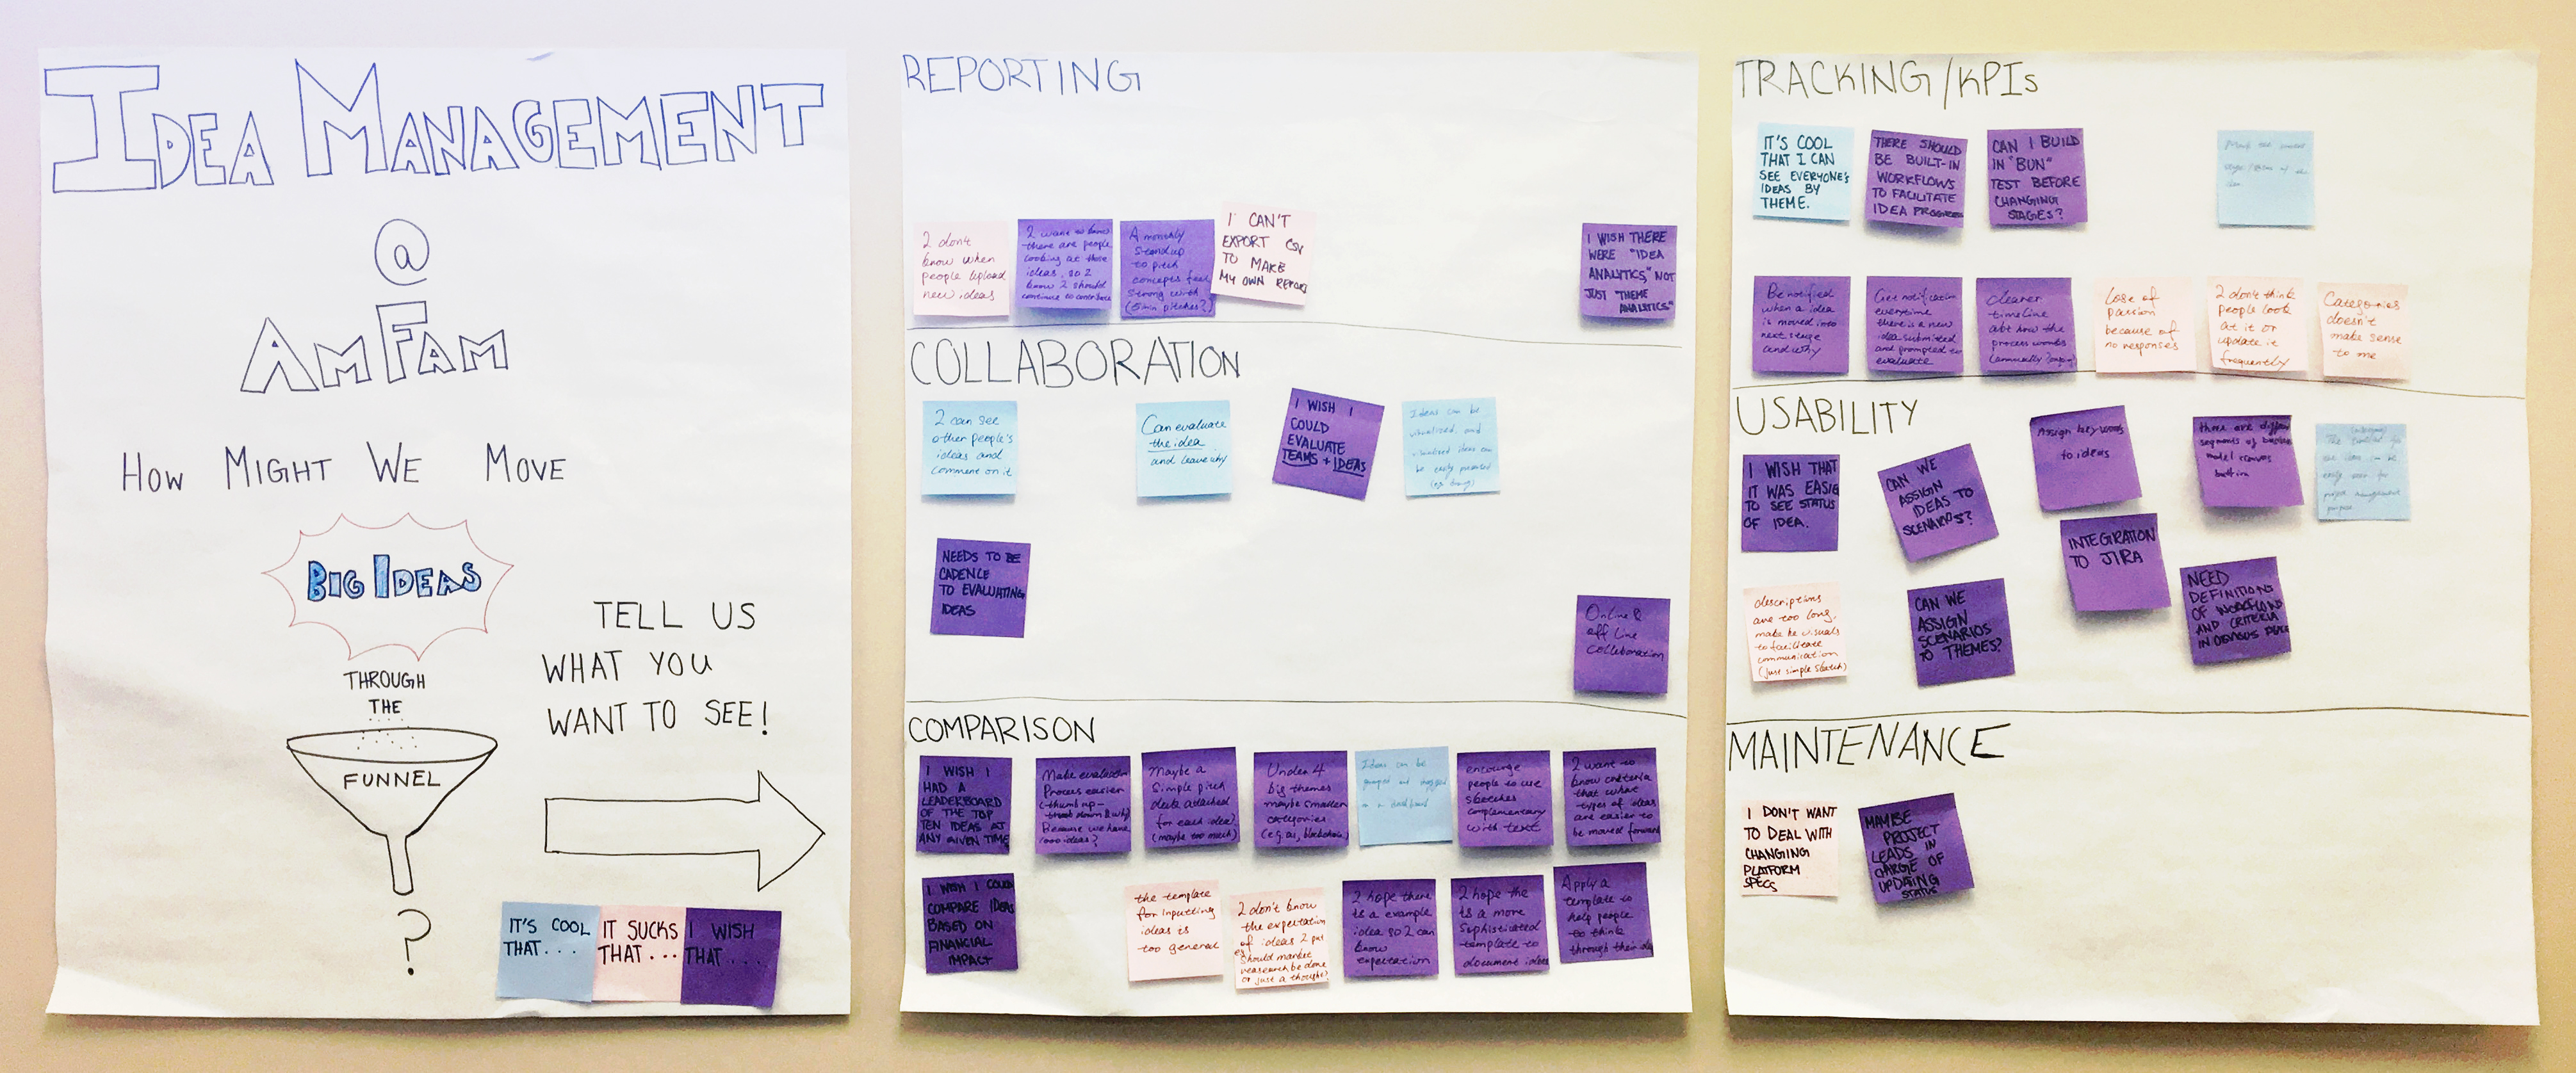 IDEA MANAGEMENT
@
AMFAM
HOW MIGHT WE MOVE
BIG IDEAS
THROUGH
THE
FUNNEL
?
TELL US
WHAT YOU
WANT TO SEE!
IT'S COOL
THAT...
IT SUCKS
THAT...
I WISH
THAT...
REPORTING
I don't
know when
people upload
new ideas
I want to know
there are people
looking at those
ideas, so I
know I should
continue to contribute
A monthly
standup
to pitch
concepts feel
strong with
(5min pitches?)
I CAN'T
EXPORT CSV
TO MAKE
MY OWN REPORT
I WISH THERE
WERE "IDEA
ANALYTICS," NOT
JUST "THEME
ANALYTICS"
COLLABORATION
I can see
other people's
ideas and
comment on it
Can evaluate
the idea
and leave why
I WISH I
COULD
EVALUATE
TEAMS + IDEAS
Ideas can be
visualized, and
visualized ideas can
be easily presented
NEEDS TO BE
CADENCE
TO EVALUATING
IDEAS
Online &
off line
collaboration
COMPARISON
I WISH I
HAD A
LEADERBOARD
OF THE TOP
TEN IDEAS AT
ANY GIVEN TIME
Make evaluation
Process easier
(thumb up-
thumb down & why)
Because we have
1000 ideas?
Maybe a
simple pitch
deck attached
for each idea?
(maybe too much)
Under 4
big themes
maybe smaller
categories
(e.g. as, blockchain)
Ideas can be
grouped and dragged
in a dashboard
encourge
people to use
sketches
complementary
with text
I want to
know criteria
that what
types of ideas
are easier to
be moved forward
I WISH I COULD
COMPARE IDEAS
BASED ON
FINANCIAL
IMPACT
the template
for inputting
ideas is
too general
I don't know
the expectation
of ideas I put
eg. Should market
research be done
or just a thought?
I hope there
is a example
idea so I can
know
expectation
I hope the
is a more
sophisticated
template to
document ideas
Apply a
template to
help people
to think
through their idea
TRACKING/KPIs
IT'S COOL
THAT I CAN
SEE EVERYONE'S
IDEAS BY
THEME.
THERE SHOULD
BE BUILT-IN
WORKFLOWS
TO FACILITATE
IDEA PROGRESS
CAN I BUILD
IN "BUN"
TEST BEFORE
CHANGING
STAGES?
the current
of the
idea
Be notified
when a idea
is moved into
next stage
and why
Get notification
everytime
there is a new
idea submitted
and prompted to
evaluate
clearer
timeline
abt how the
process works
Lose of
passion
because of
no responses
I don't think
people look
at it or
update it
frequently
Categories
doesn't
make sense
to me
USABILITY
I WISH THAT
IT WAS EASIE
TO SEE STATUS
OF IDEA.
CAN WE
ASSIGN
IDEAS TO
SCENARIOS?
Assign key words
to ideas
there are differ
segments of business
model canvas
built-in
can be
easily seen for
project management
purpose
INTEGRATION
TO JIRA
descriptions
are too long,
make be visuals
to facilitate
communication
(just simple sketch)
CAN WE
ASSIGN
SCENARIOS
TO THEMES?
NEED
DEFINITIONS
OF WORKFLOWS
AND CRITERIA
IN OBVIOUS PLACE
MAINTENANCE
I DON'T WANT
TO DEAL WITH
CHANGING
PLATFORM
SPECS
MAYBE
PROJECT
LEADS IN
CHARGE OF
UPDATING
STATUS